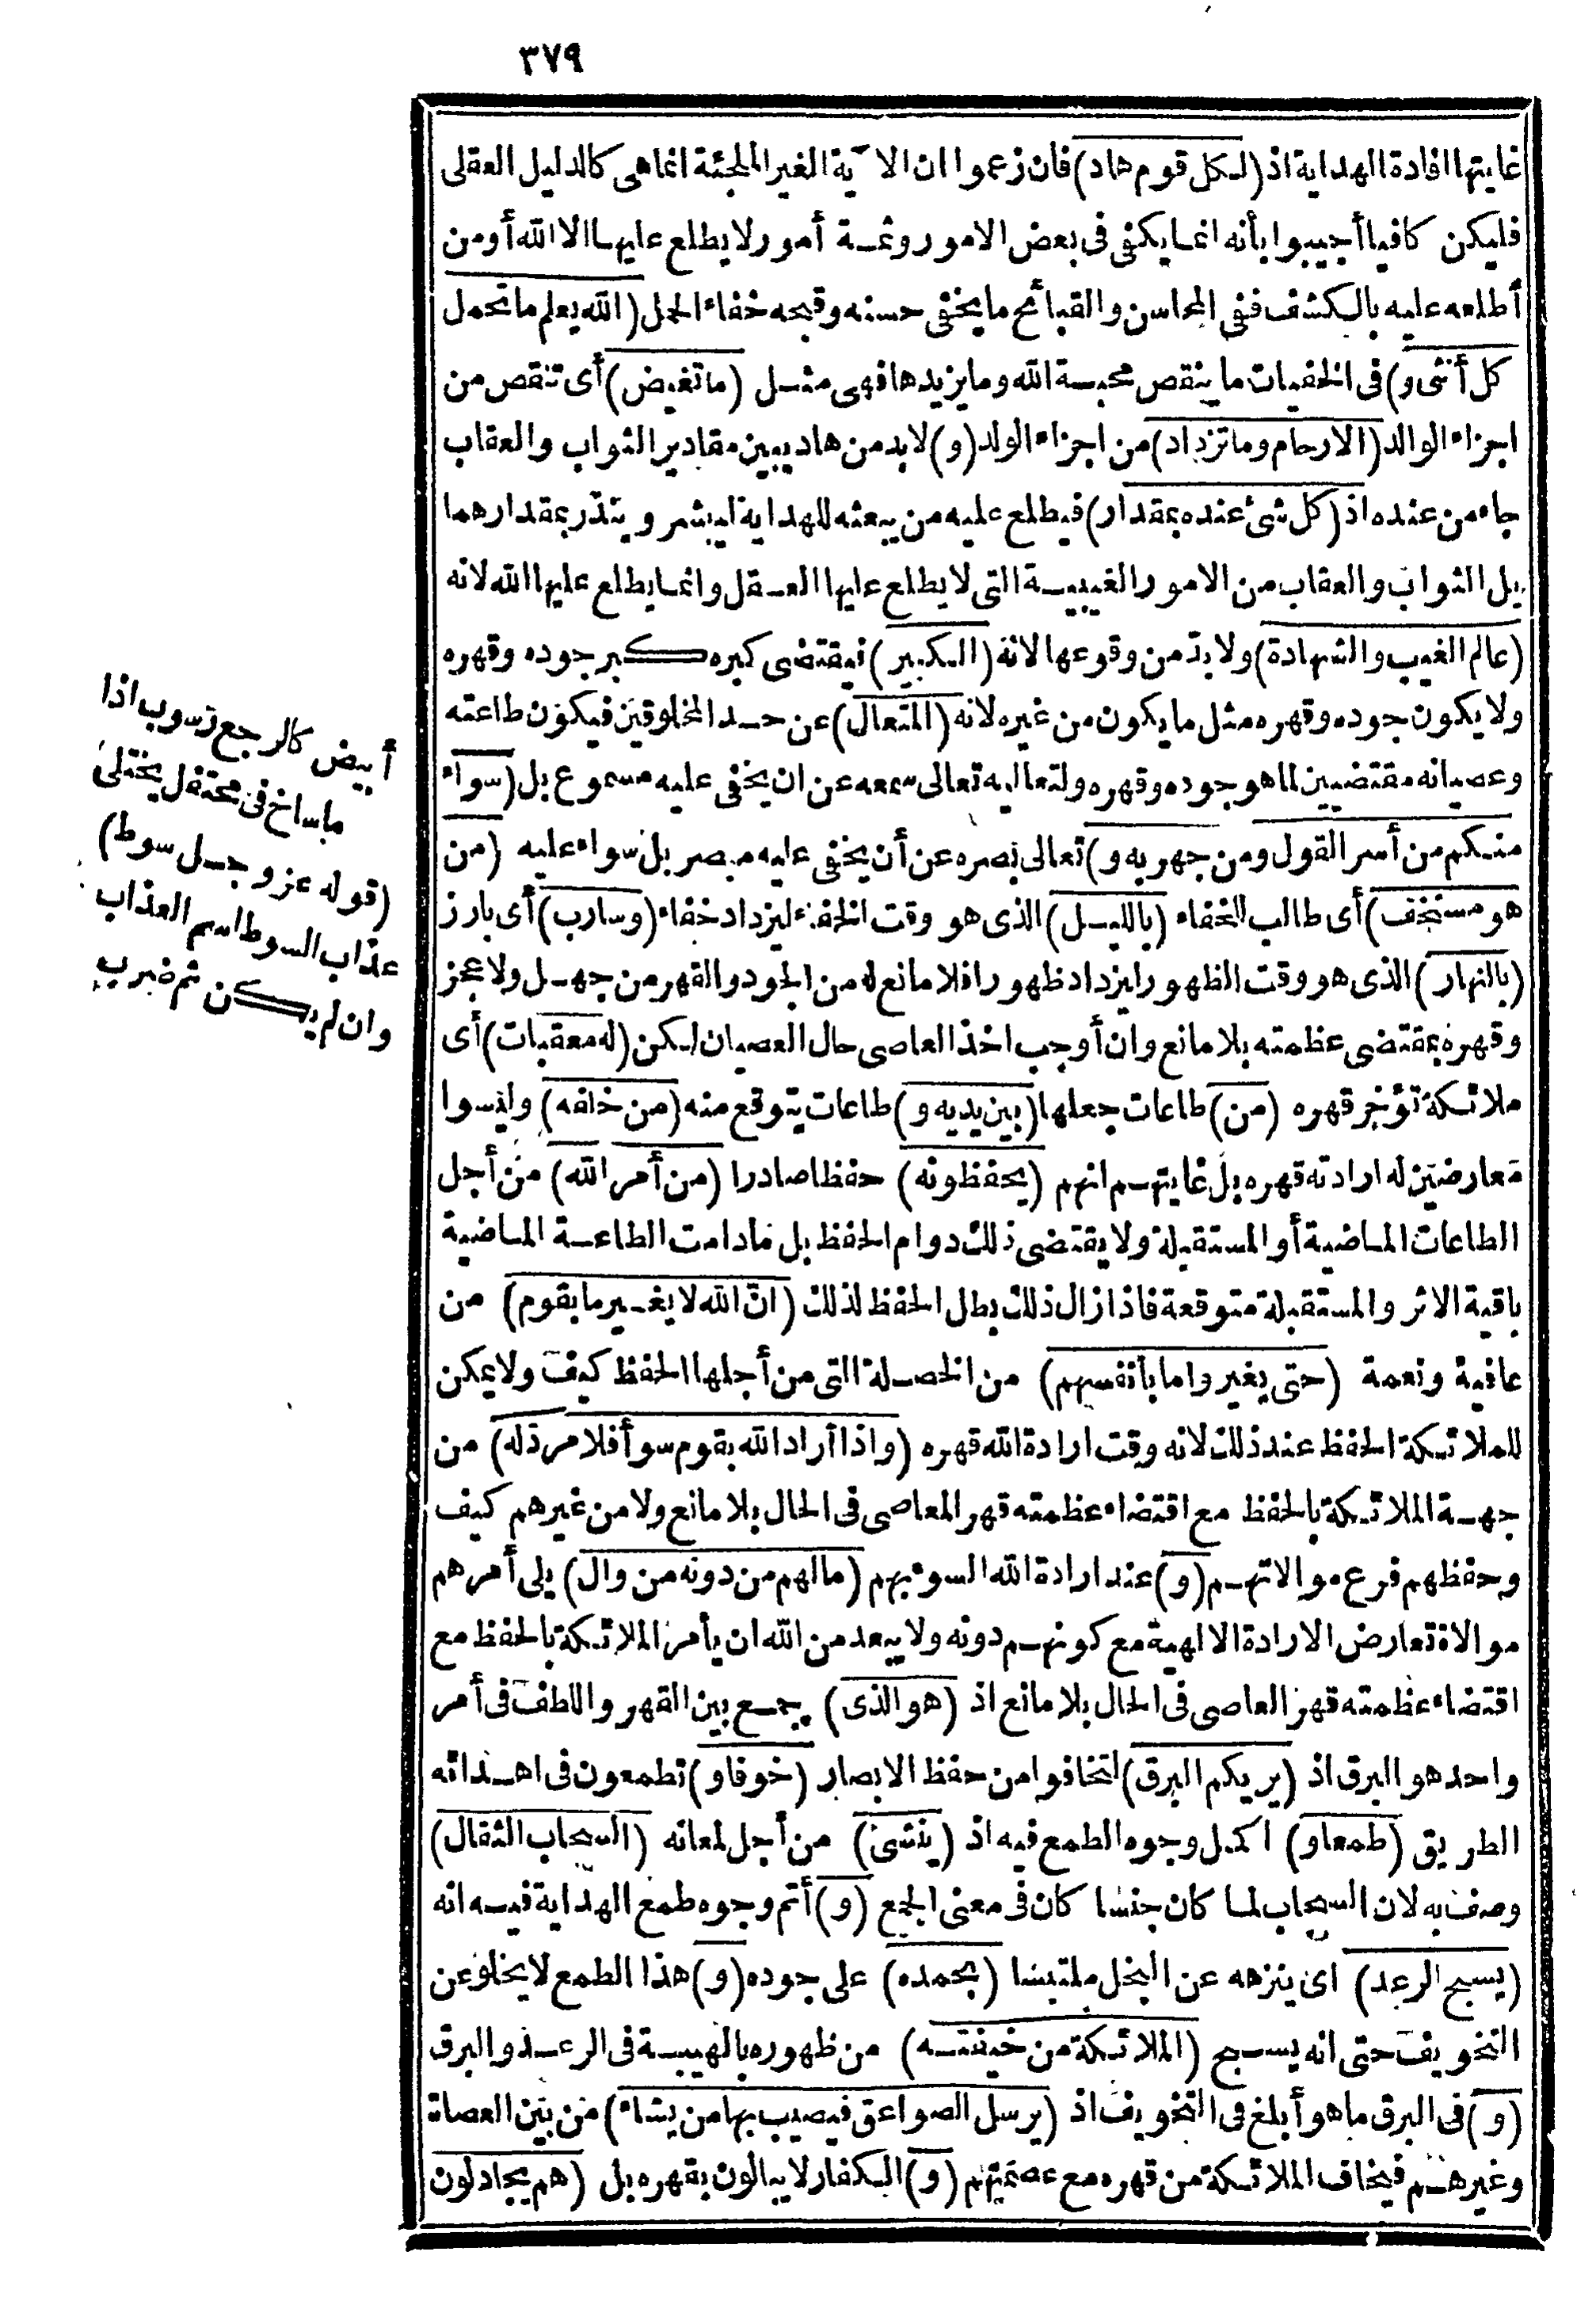 ٣٧٩
غايتها افادة الهداية اذ (لكل قوم هاد) فان زعموا ان الا ية الغير الملجئة انما هى كالدليل العقلى
فليكن كافيا أجيبوا بأنه انما يكفى فى بعض الامور وثمة أمور لا يطلع عليها الا الله أو من
أطلعه عليه بالكشف ففى المحاسن والقبائح ما يخفى حسنه وقبحه خفاء الحمل (الله يعلم ما تحمل
كل أنثى و) فى الخفيات ما ينقص محبة الله وما يزيدها فهى مثل (ما تغيض) أى تنقص من
اجزاء الوالد (الارحام وما تزداد) من اجزاء الولد (و) لابد من هاد يبين مقادير الثواب والعقاب
جاء من عنده اذ (كل شئ عنده بمقدار) فيطلع عليه من يبعثه للهداية ليبشر وينذر بمقدارهما
بل الثواب والعقاب من الامور الغيبية التى لا يطلع عليها العقل وانما يطلع عليها الله لانه
(عالم الغيب والشهادة) ولا بد من وقوعها لانه (الكبير) فيقتضى كبره كبر جوده وقهره
ولا يكون جوده وقهره مثل ما يكون من غيره لانه (المتعال) عن حد المخلوقين فيكون طاعته
وعصيانه مقتضيين لما هو جوده وقهره ولتعاليه تعالى سمعه عن ان يخفى عليه مسموع بل (سواء
منكم من أسر القول ومن جهر به و) تعالى بصره عن أن يخفى عليه مبصر بل سواء عليه (من
هو مستخف) أى طالب الخفاء (بالليل) الذى هو وقت الخفاء ليزداد خفاء (وسارب) أى بارز
(بالنهار) الذى هو وقت الظهور ليزداد ظهورا فلا مانع له من الجود والقهر من جهل ولا عجز
وقهره بمقتضى عظمته بلا مانع وان أوجب اخذ العاصى حال العصيان لكن (له معقبات) أى
ملائكة تؤخر قهره (من) طاعات جعلها (بين يديه و) طاعات يتوقع منه (من خلفه) وليسوا
معارضين له ارادته قهره بل غايتهم انهم (يحفظونه) حفظا صادرا (من أمر الله) من أجل
الطاعات الماضية أو المستقبلة ولا يقتضى ذلك دوام الحفظ بل مادامت الطاعة الماضية
باقية الاثر والمستقبلة متوقعة فاذا زال ذلك بطل الحفظ لذلك (ان الله لا يغير ما بقوم) من
عافية ونعمة (حتى يغير واما بأنفسهم) من الخصلة التى من أجلها الحفظ كيف ولا يمكن
للملائكة الحفظ عند ذلك لانه وقت ارادة الله قهره (واذا أراد الله بقوم سوأ فلا مرد له) من
جهة الملائكة بالحفظ مع اقتضاء عظمته قهر المعاصى فى الحال بلا مانع ولا من غيرهم كيف
وحفظهم فرع موالاتهم (و) عند ارادة الله السوء بهم (مالهم من دونه من وال) يلى أمرهم
موالاة تعارض الارادة الالهية مع كونهم دونه ولا يبعد من الله ان يأمر الملائكة بالحفظ مع
اقتضاء عظمته قهر العاصى فى الحال بلا مانع اذ (هو الذى) يجمع بين القهر واللطف فى أمر
واحد هو البرق اذ (يريكم البرق) لتخافوا من حفظ الابصار (خوفا و) تطمعون فى اهدائه
الطريق (طمعا و) اكمل وجوه الطمع فيه اذ (ينشئ) من أجل لمعانه (السحاب الثقال)
وصف به لان السحاب لما كان جنسا كان فى معنى الجمع (و) أتم وجوه طمع الهداية فيه انه
(يسبح الرعد) اى ينزهه عن البخل ملتبسا (بحمده) على جوده (و) هذا الطمع لا يخلو عن
التخويف حتى انه يسبح (الملائكة من خيفته) من ظهوره بالهيبة فى الرعد والبرق
(و) فى البرق ما هو أبلغ فى التخويف اذ (يرسل الصواعق فيصيب بها من يشاء) من بين العصاة
وغيرهم فيخاف الملائكة من قهره مع عصمتهم (و) الكفار لا يبالون بقهره بل (هم يجادلون
أبيض كالرجع رسوب اذا
ما ساخ فى محتفل يختلى
(قوله عز وجل سوط)
عذاب السوط اسم العذاب
وان لم يكن ثم ضرب